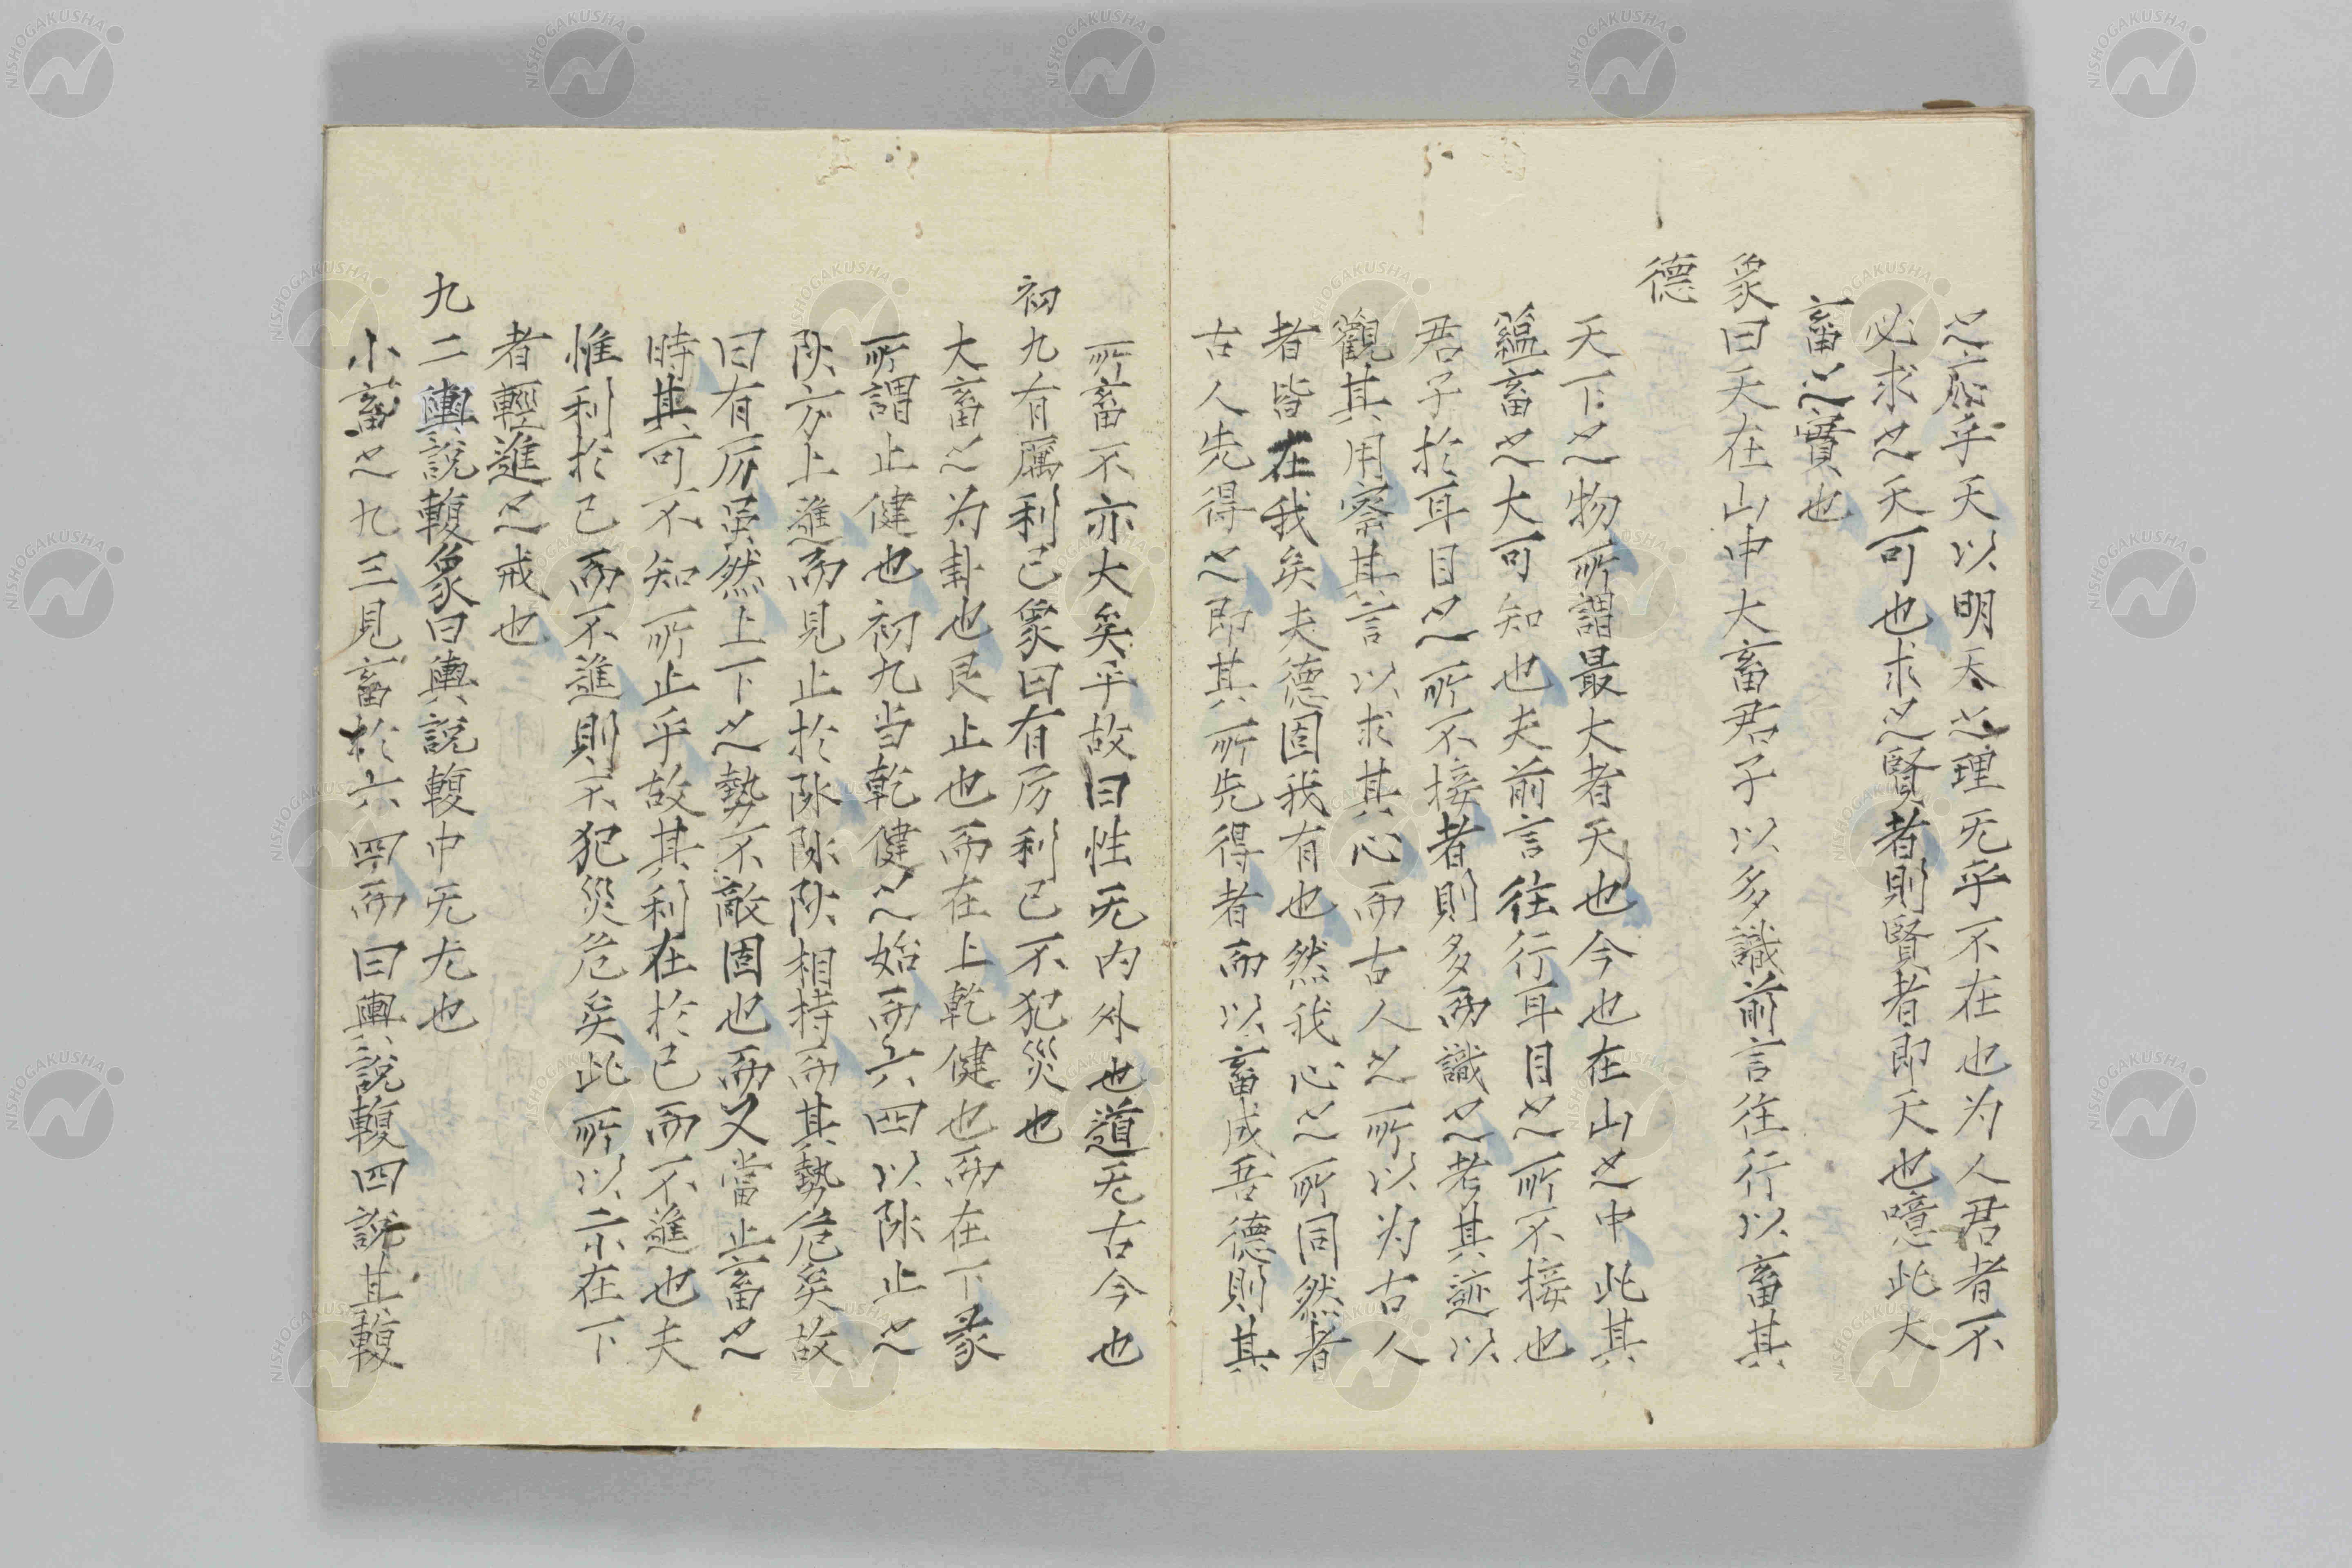 之應乎天以明天之理无乎不在也为人君者不
必求之天可也求之賢者則賢者即天也噫此大
畜之實也
象曰天在山中大畜君子以多識前言往行以畜其
德
天下之物所謂最大者天也今也在山之中此其
蘊畜之大可知也夫前言往行耳目之所不接也
君子於耳目之所不接者則多而識之考其迹以
觀其用察其言以求其心而古人之所以为古人
者皆在我矣夫德固我有也然我心之所同然者
古人先得之即其所先得者而以畜成吾德則其
所畜不亦大矣乎故曰性无内外也道无古今也
初九有厲利已象曰有厉利已不犯災也
大畜之为卦也艮止也而在上乾健也而在下彖
所謂止健也初九当乾健之始而六四以陰止之
陽方上進而見止於陰陰陽相持而其勢危矣故
曰有厉莫然上下之勢不敵固也而又當止畜之
時其可不知所止乎故其利在於已而不進也夫
惟利於已而不進則不犯災危矣此所以示在下
者輕進之戒也
九二輿説輹象曰輿説輹中无尤也
小畜之九三見畜於六四而曰輿説輹四説其輹
NISHOGAKUSHA